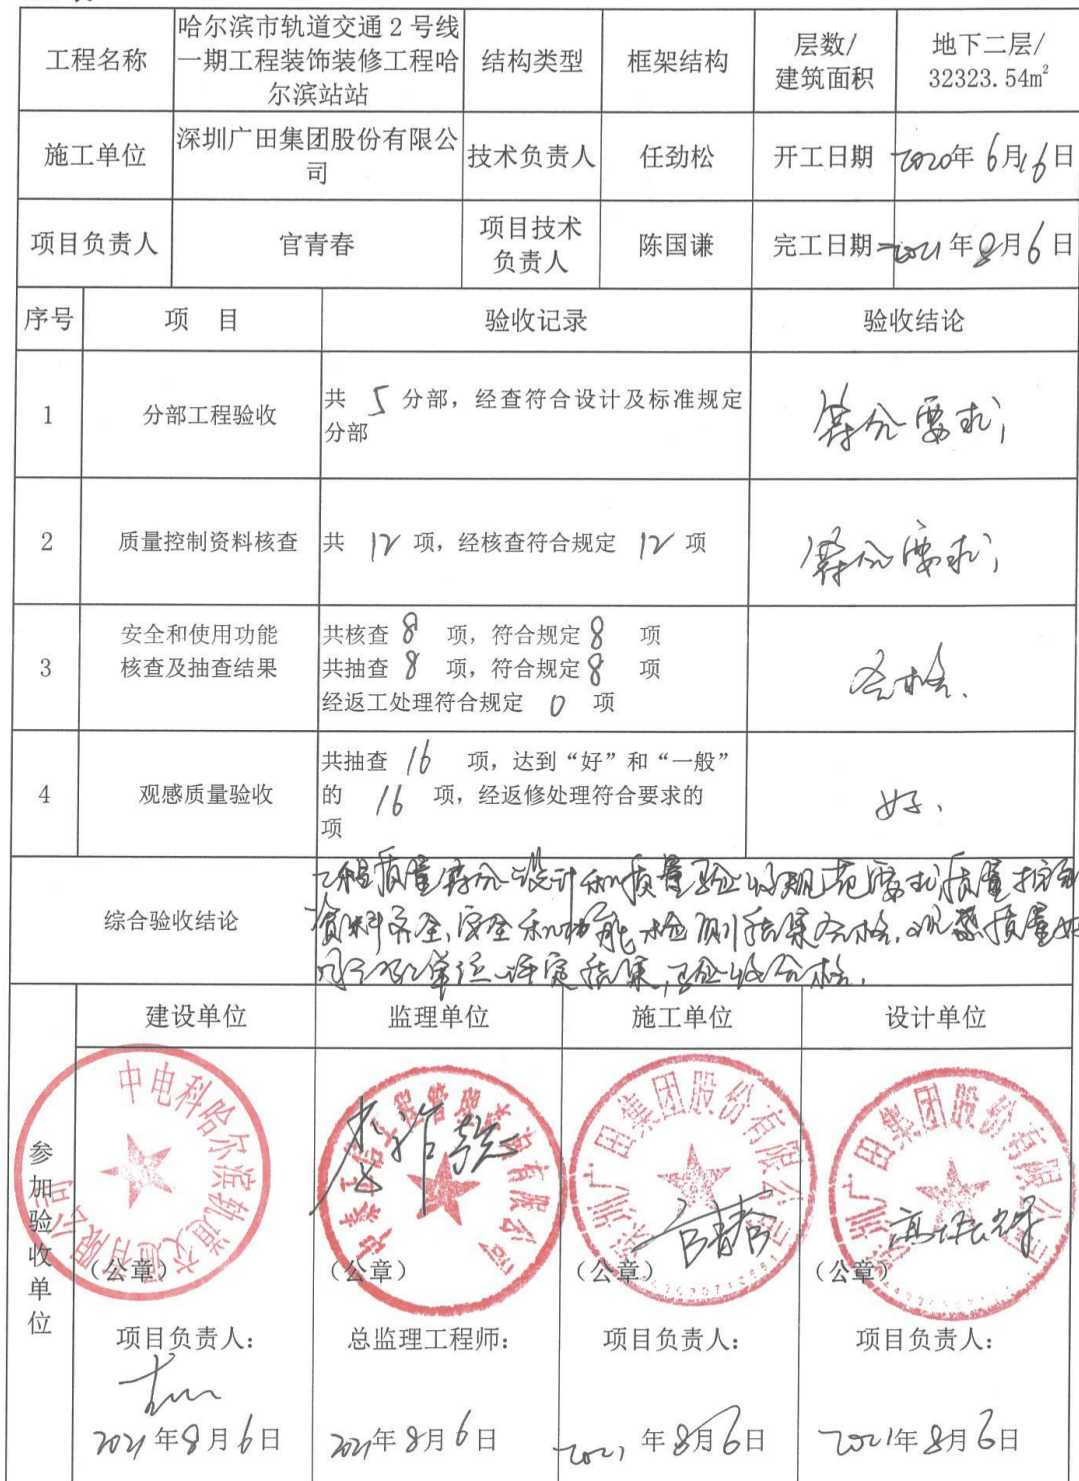 工程名称
哈尔滨市轨道交通 2 号线
一期工程装饰装修工程哈
尔滨站站
结构类型
框架结构
层数/
建筑面积
地下二层/
32323.54m²
施工单位
深圳广田集团股份有限公
司
技术负责人
任劲松
开工日期
2020年 6月16日
项目负责人
官青春
项目技术
负责人
陈国谦
完工日期
2021年8月6日
序号
项 目
验收记录
验收结论
1
分部工程验收
共 5 分部，经查符合设计及标准规定
分部
符合要求；
2
质量控制资料核查
共 12 项，经核查符合规定 12 项
符合要求；
3
安全和使用功能
核查及抽查结果
共核查 8 项，符合规定 8 项
共抽查 8 项，符合规定 8 项
经返工处理符合规定 0 项
合格.
4
观感质量验收
共抽查 16 项，达到“好”和“一般”
的 16 项，经返修处理符合要求的
项
好.
综合验收结论
工程质量符合设计和质量验收规范要求，质量控制
资料齐全，安全和功能检测结果合格，观感质量好
同意 单位评定结果，验收合格.
参加验收单位
建设单位
监理单位
施工单位
设计单位
中电科哈尔滨轨道交通有限公司
深圳广田集团股份有限公司
官青春
深圳广田集团股份有限公司
（公章）
（公章）
（公章）
（公章）
项目负责人：
总监理工程师：
项目负责人：
项目负责人：
2021年8月6日
2021年8月6日
2021年8月6日
2021年8月6日